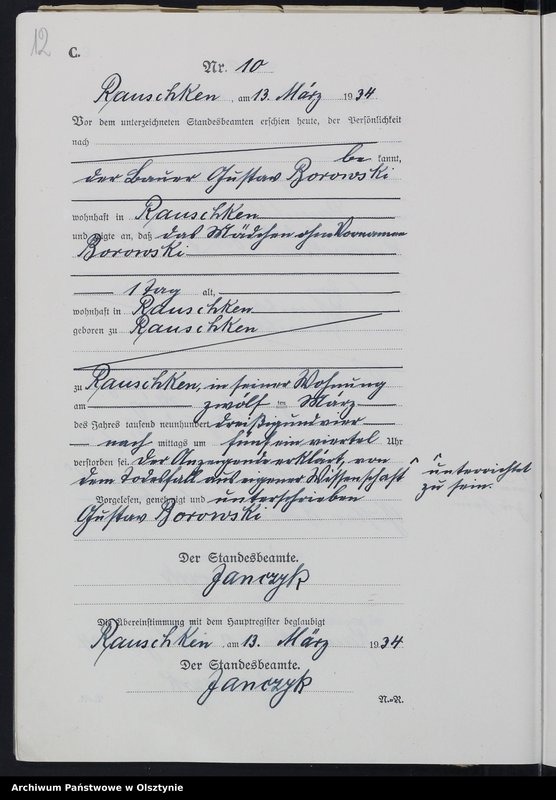 12
C.
Nr. 10
Rauschken, am 13. März 1934
Vor dem unterzeichneten Standesbeamten erschien heute, der Persönlichkeit
nach
be kannt,
der Bauer Gustav Borowski
wohnhaft in Rauschken
und zeigte an, daß das Mädchen ohne Vornamen
Borowski
1 Tag alt,
wohnhaft in Rauschken
geboren zu Rauschken
zu Rauschken, in seiner Wohnung
am zwölften März
des Jahres tausend neunhundert dreißigundvier
nach mittags um fünf ein viertel Uhr
verstorben sei. Der Anzeigende erklärt, von
dem Todesfall aus eigener Wissenschaft ⌈ ⌈ unterrichtet
zu sein.
Vorgelesen, genehmigt und unterschrieben
Gustav Borowski
Der Standesbeamte.
Janczyk
Die Übereinstimmung mit dem Hauptregister beglaubigt
Rauschken, am 13. März 1934
Der Standesbeamte.
Janczyk
N.-N.
Archiwum Państwowe w Olsztynie